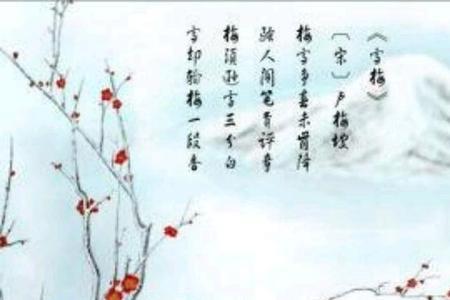 《雪梅》
〔宋〕卢梅坡
梅雪争春未肯降
骚人阁笔费评章
梅须逊雪三分白
雪却输梅一段香